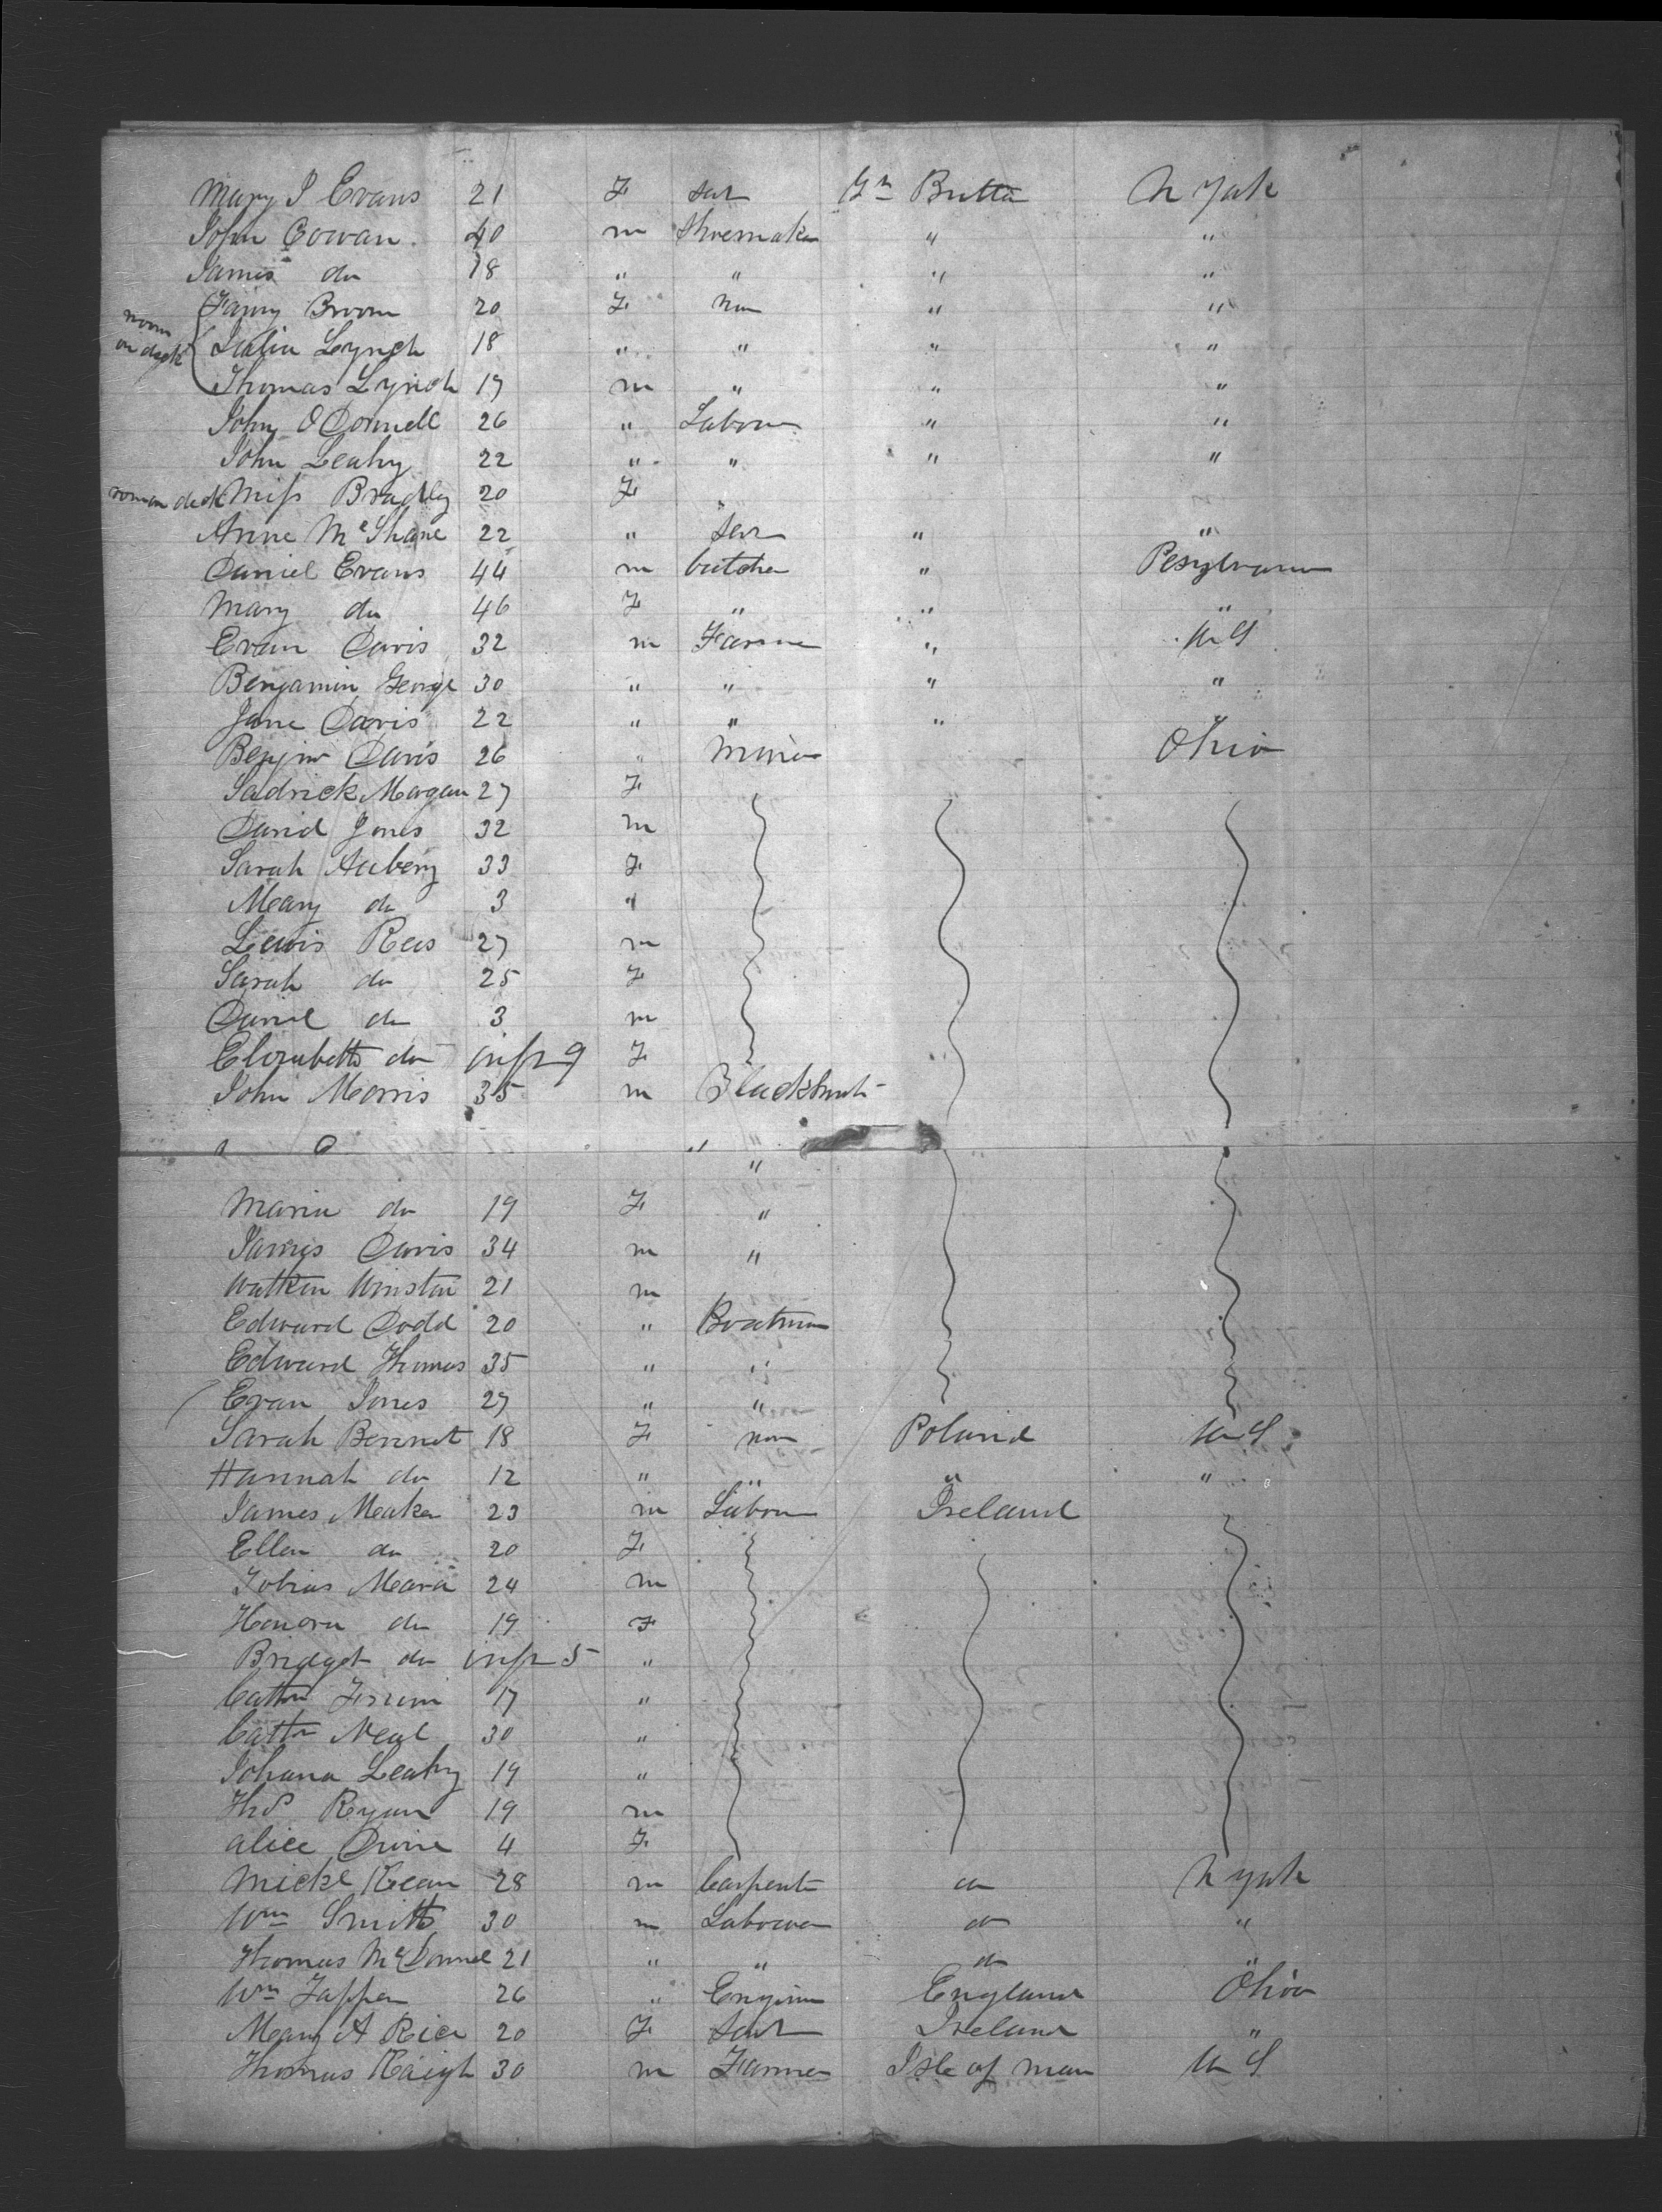 Mary J Evans 21 F Sert Gt Britta N York
John Cowan 40 m Shoemaker " "
James do 18 " " " "
Fanny Broom 20 F non " "
room on deck
Julia Lynch 18 " " " "
Thomas Lynch 19 m " " "
John O Donnell 26 " Labour " "
John Leahy 22 " " " "
room on deck Miss Bradley 20 F
Anne McShane 22 " Sert " "
Daniel Evans 44 m butcher " Pesylvania
Mary do 46 F " " "
Evan Davis 32 m Farmer " U S
Benjamin George 30 " " " "
Jane Davis 22 " " "
Benjm Davis 26 " Miner Ohio
Sadrick Morgan 27 F
David Jones 32 m
Sarah Aubery 33 F
Mary do 3 "
Lewis Rees 27 m
Sarah do 25 F
David do 3 m
Elizabeth do inft 9 F
John Morris 35 m Blacksmith
" "
Maria do 19 F "
James Davis 34 m "
Watkin Winston 21 m
Edward Dodd 20 " Boatman
Edward Thomas 35 " "
Evan Jones 27 " "
Sarah Bennet 18 F non Poland U S
Hannah do 12 " " " "
James Meaker 23 m Labour Ireland
Ellen do 20 F
Tobias Meara 24 m
Honora do 19 F
Bridget do inft 5 "
Cathn 17 "
Cathn Neal 30 "
Johana Leahy 19 "
Ths Ryan 19 m
Alice 4 F
Mickl Kean 28 m Carpent do N York
Wm Smith 30 m Labourer do "
Thomas McDonnel 21 " " do "
Wm Tapper 26 " Enginer England Ohio
Mary A Rice 20 F Sert Ireland "
Thomas Kaigh 30 m Farmer Isle of man U S